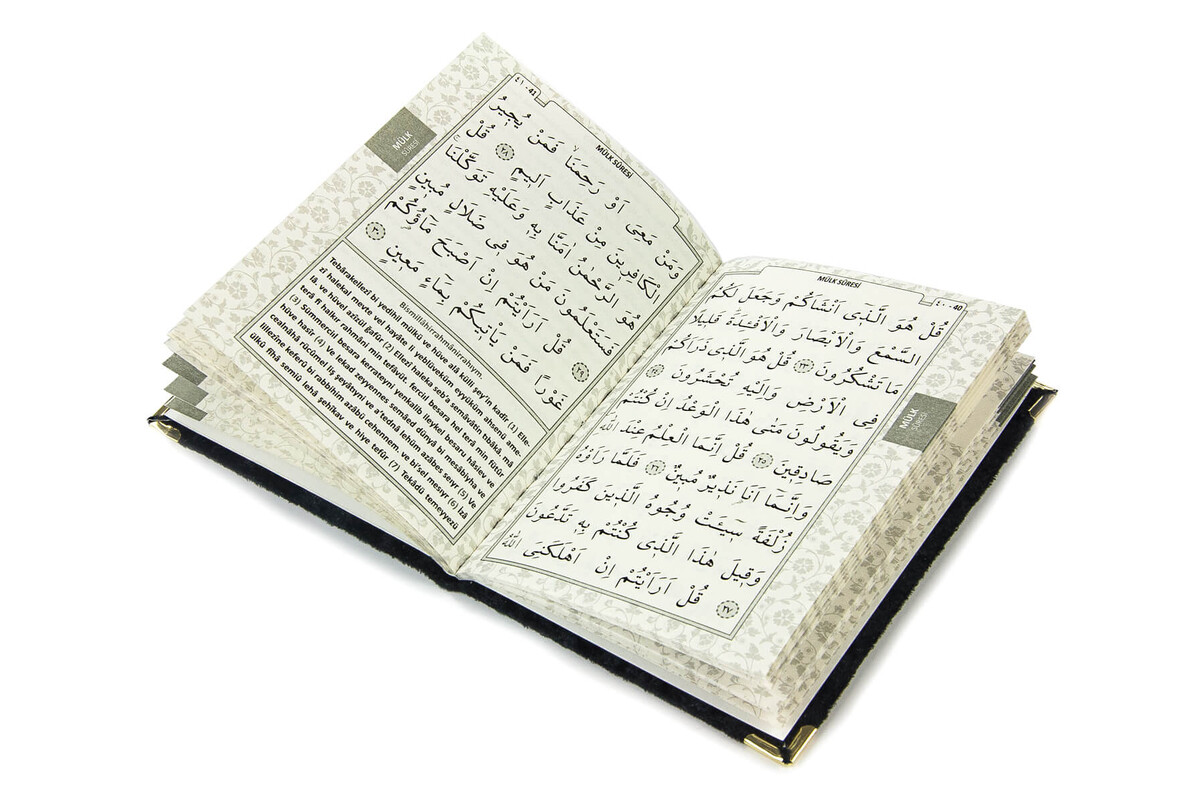 MÜLK SÛRESİ
٤٠ - 40
قُلْ هُوَ الَّذ۪ٓي اَنْشَاَكُمْ وَجَعَلَ لَكُمُ
السَّمْعَ وَالْاَبْصَارَ وَالْاَفْـِٔدَةَ قَل۪يلًا
مَا تَشْكُرُونَ ٢٣ قُلْ هُوَ الَّذ۪ي ذَرَاَكُمْ
فِي الْاَرْضِ وَاِلَيْهِ تُحْشَرُونَ ٢٤
وَيَقُولُونَ مَتٰى هٰذَا الْوَعْدُ اِنْ كُنْتُمْ
صَادِق۪ينَ ٢٥ قُلْ اِنَّمَا الْعِلْمُ عِنْدَ اللّٰهِ
وَاِنَّمَٓا اَنَا۬ نَذ۪يرٌ مُب۪ينٌ ٢٦ فَلَمَّا رَاَوْهُ
زُلْفَةً س۪ٓيـَٔتْ وُجُوهُ الَّذ۪ينَ كَفَرُوا
وَق۪يلَ هٰذَا الَّذ۪ي كُنْتُمْ بِه۪ تَدَّعُونَ
٢٧ قُلْ اَرَاَيْتُمْ اِنْ اَهْلَكَنِيَ اللّٰهُ
MÜLK
SÛRESİ
MÜLK SÛRESİ
٤١ - 41
وَمَنْ مَعِيَ اَوْ رَحِمَنَاۙ فَمَنْ يُج۪يرُ
الْكَافِر۪ينَ مِنْ عَذَابٍ اَل۪يمٍ ٢٨ قُلْ
هُوَ الرَّحْمٰنُ اٰمَنَّا بِه۪ وَعَلَيْهِ تَوَكَّلْنَاۚ
فَسَتَعْلَمُونَ مَنْ هُوَ ف۪ي ضَلَالٍ مُب۪ينٍ
٢٩ قُلْ اَرَاَيْتُمْ اِنْ اَصْبَحَ مَٓاؤُ۬كُمْ
غَوْرًا فَمَنْ يَأْت۪يكُمْ بِمَٓاءٍ مَع۪ينٍ ٣٠
MÜLK
SÛRESİ
Bismillâhirrahmânirrahıym.
Tebârakellezî bi yedihil mülkü ve hüve alâ külli şey'in kadîr. (1) Elle-
zî halekal mevte vel hayâte li yeblüveküm eyyüküm ahsenü ame-
lâ. ve hüvel azîzül ğafûr (2) Ellezî haleka seb'a semâvâtin tıbâkâ. mâ
terâ fî halkır rahmâni min tefâvüt. ferciıl besara hel terâ min fütûr
(3) Sümmerciıl besara kerrateyni yenkalib ileykel besaru hâsiev ve
hüve hasîr (4) Ve lekad zeyyennes semâed dünyâ bi mesâbîyha ve
cealnâhâ rücûmel liş şeyâtıyni ve a'tednâ lehüm azâbes seıyr (5) Ve
lillezîne keferû bi rabbihim azâbü cehennem. ve bi'sel mesıyr (6) İzâ
ülkû fîhâ semiû lehâ şehîkav ve hiye tefûr (7) Tekâdü temeyyezü